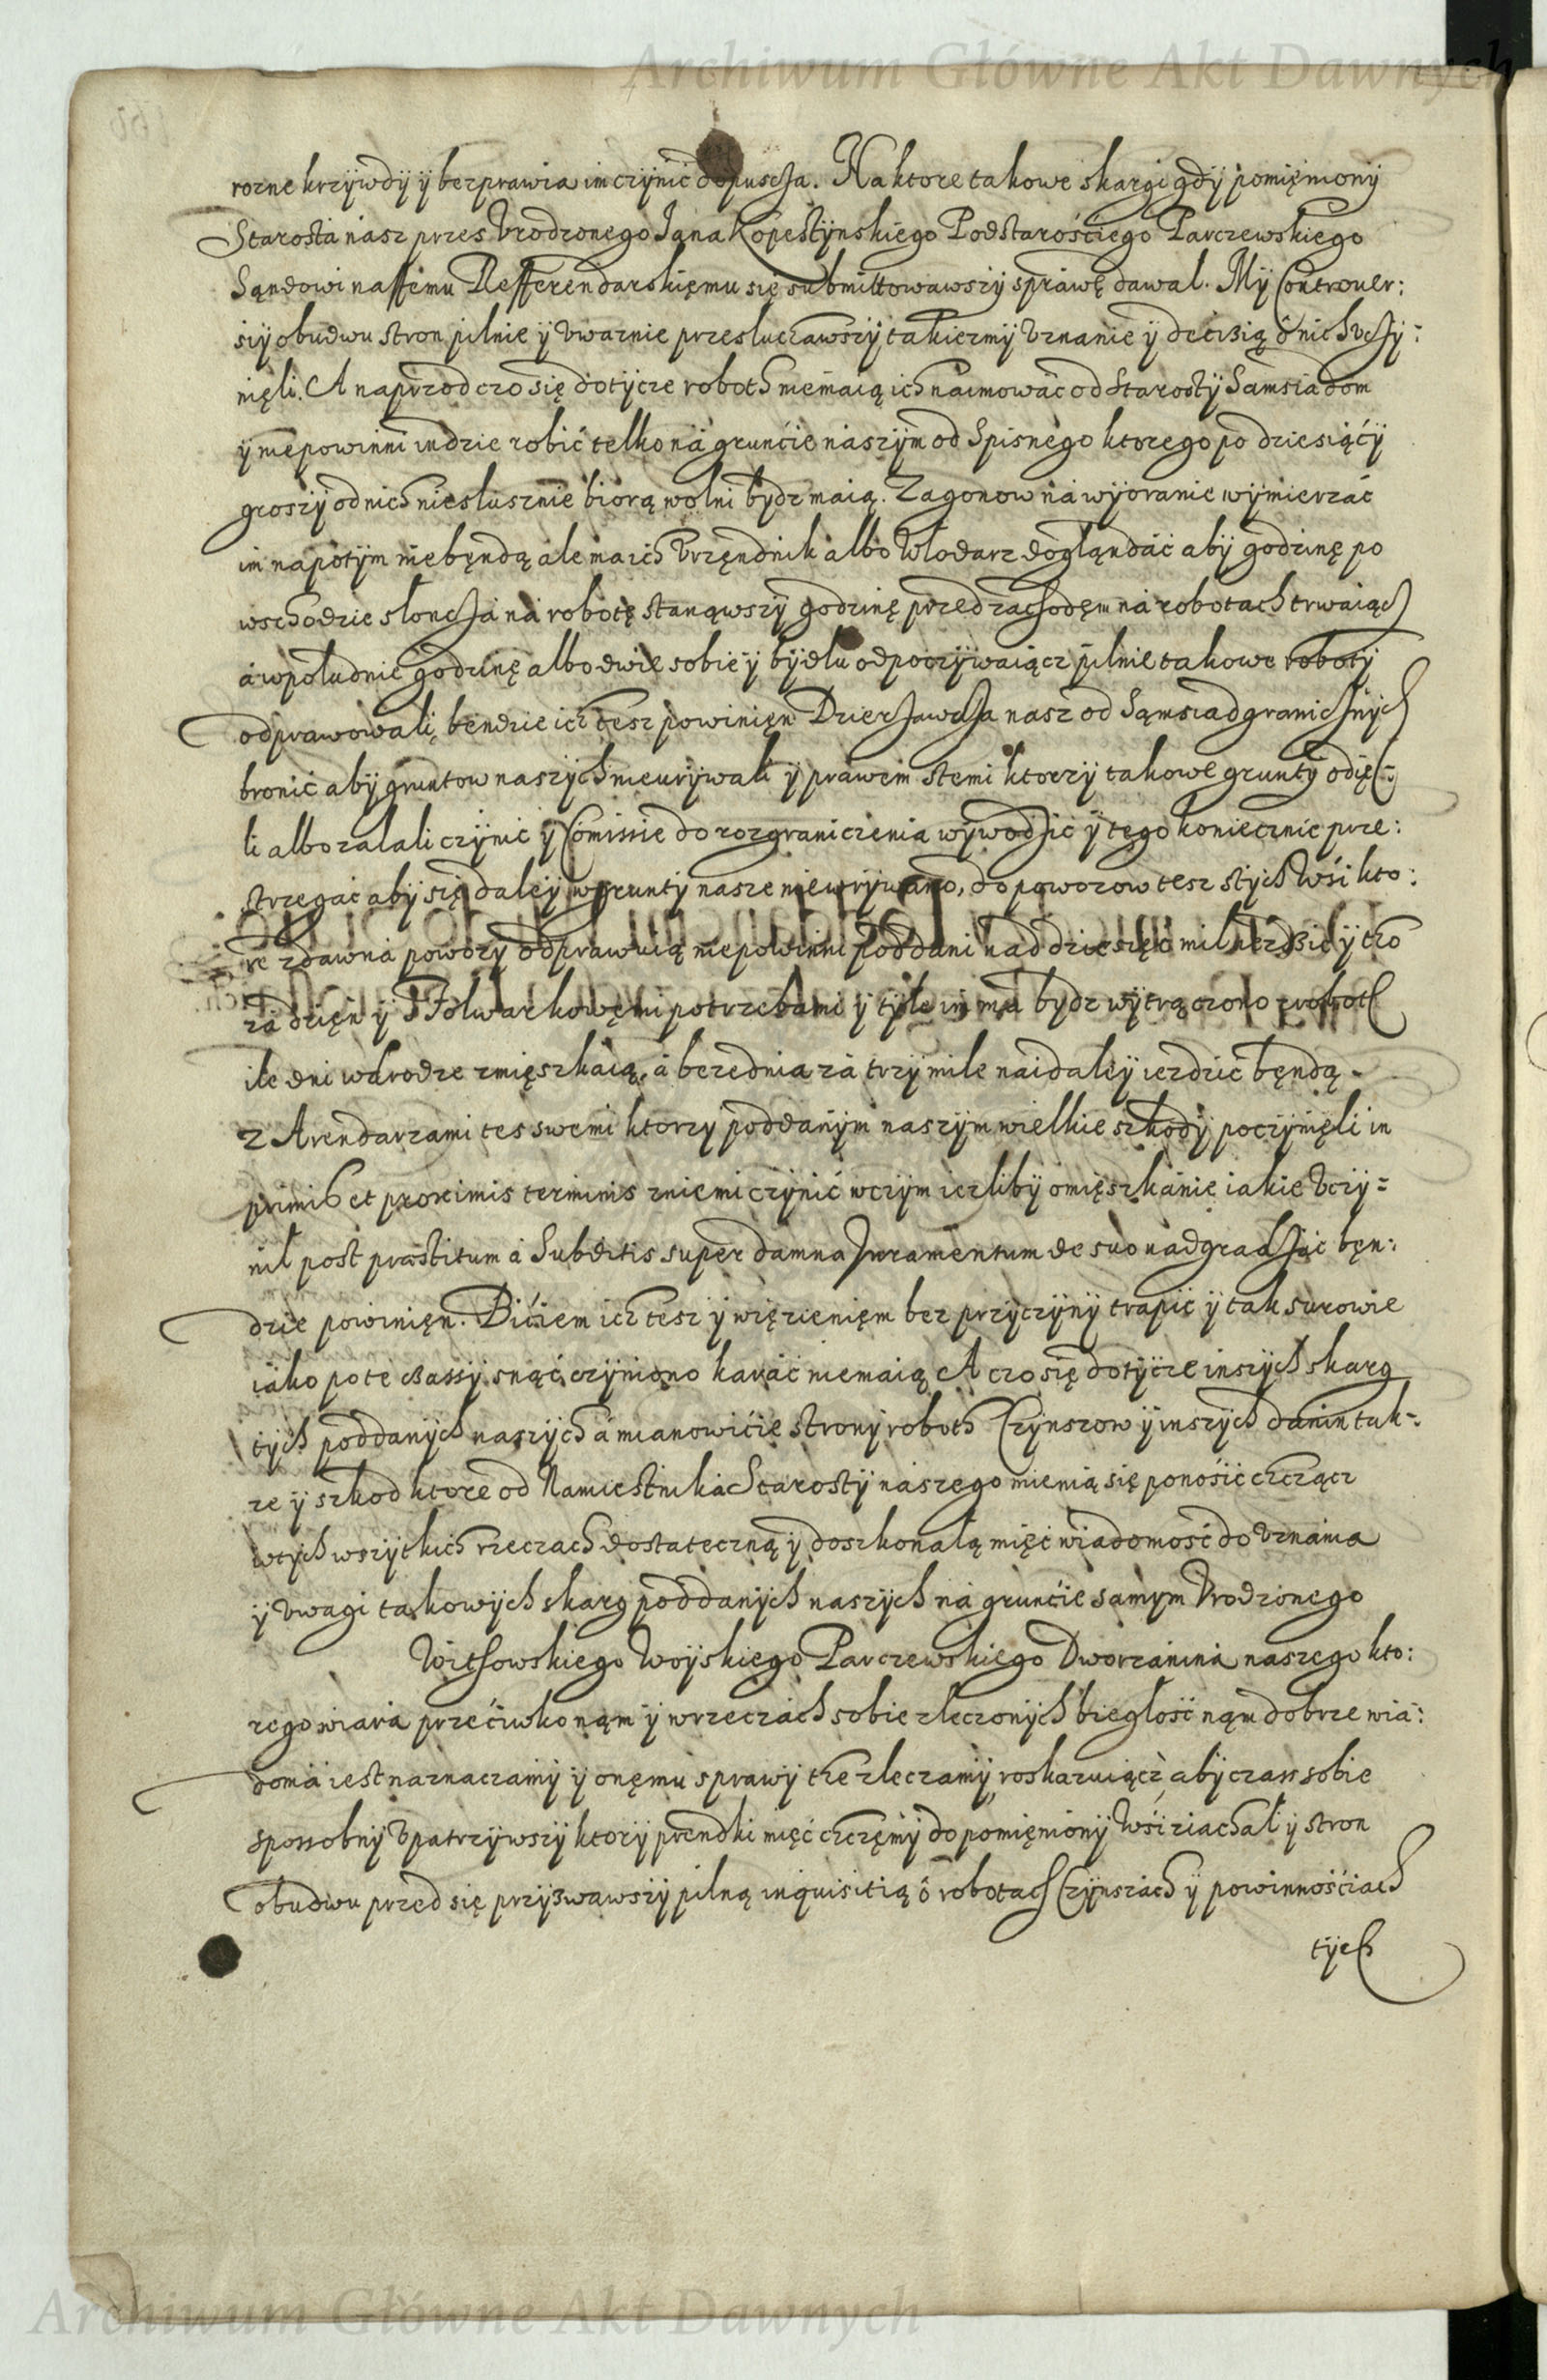 Archiwum Główne Akt Dawnych
rozne krzywdy y bezprawia im czynić dopuscza. Na ktore takowe skargi gdy pomięniony
Starosta nasz przes Vrodzonego Iana Kopestynskiego Podstarościego Parczewskiego
Sąndowi naszemu Refferendarskięmu się submittowawszy sprawę dawal. My Controuer:
siy obudwu stron pilnie y vwaznie przesluczawszy takiezmy vznanie y decisią o nich vczy:
nięli. A naprzod czo się dotycze roboth niemaią ich naimowac od Starosty Samsiadom
y niepowinni indzie robić telko na grunćie naszym od Spisnego ktorego po dziesiąćy
groszy od nich nieslusznie biorą wolni bydz maią. Zagonow na wyoranie wymierzać
im napotym niebęndą ale ma ich Vrzęndnik albo Wlodarz doglądać aby godzinę po
wschodzie sloncza na robotę stanąwszy godzinę przed zachodęm na robotach trwaiącz
a wpoludnie godzinę albo dwie sobie y bydlu odpoczywaiącz pilnie takowe roboty
odprawowali, bendzie ich tesz powinięn Dzierzawcza nasz od Sąmsiad granicznych
bronić aby gruntow naszych nieurywali y prawem stemi ktorzy takowe grunty odię:
li albo zalali czynić y Comissie do rozgraniczenia wywodzić y tego koniecznie prze:
strzegać aby się daley w grunty nasze niewrywano, do powozow tesz stych Wsi kto:
re zdawna powozy odprawuią niepowinni poddani nad dziesięć mil iezdzić y tho
za dzięn y s Folwarkowęmi potrzebami y tyle im ma bydz wytrąnczono z roboth
ile dni w drodze zmięszkaią, a bezednia za trzy mile naidaley iezdzić będą.
Z Arendarzami tes swemi ktorzy poddanym naszym wielkie szkody poczynięli in
primis et proximis terminis zniemi czynić wczym iezliby omięszkanie iakie vczy=
nil post præstitum a Subditis super damna Iuramentum de suo nadgradzać bęn:
dzie powinięn. Bićiem ich tesz y więzienięm bez przyczyny trapić y tak surowie
iako po te czassy snąć czyniono karać niemaią A czo się dotycze inszych skarg
tych poddanych naszych a mianowićie strony roboth Czynszow y inszych danin tak:
ze y szkod ktore od Namiestnika Starosty naszego mienią się ponosić chcącz
wtych wszytkich rzeczach dostateczną y doszkonalą mięć wiadomość do vznania
y vwagi takowych skarg poddanych naszych na grunćie samym Vrodzonego
Witsowskiego Woyskiego Parczewskiego Dworzanina naszego kto:
rego wiara przećiwko nąm y wrzeczach sobie zleczonych bieglość nąm dobrze wia:
doma iest naznaczamy y onęmu sprawy the zleczamy, roskazuiącz, aby czass sobie
spossobny vpatrzywszy ktory prendki mięć chczęmy do pomięniony Wsi ziachal y stron
obudwu przed się przyzwawszy pilną inquisitią o robotach Czynszach y powinnośćiach
tych
Archiwum Główne Akt Dawnych